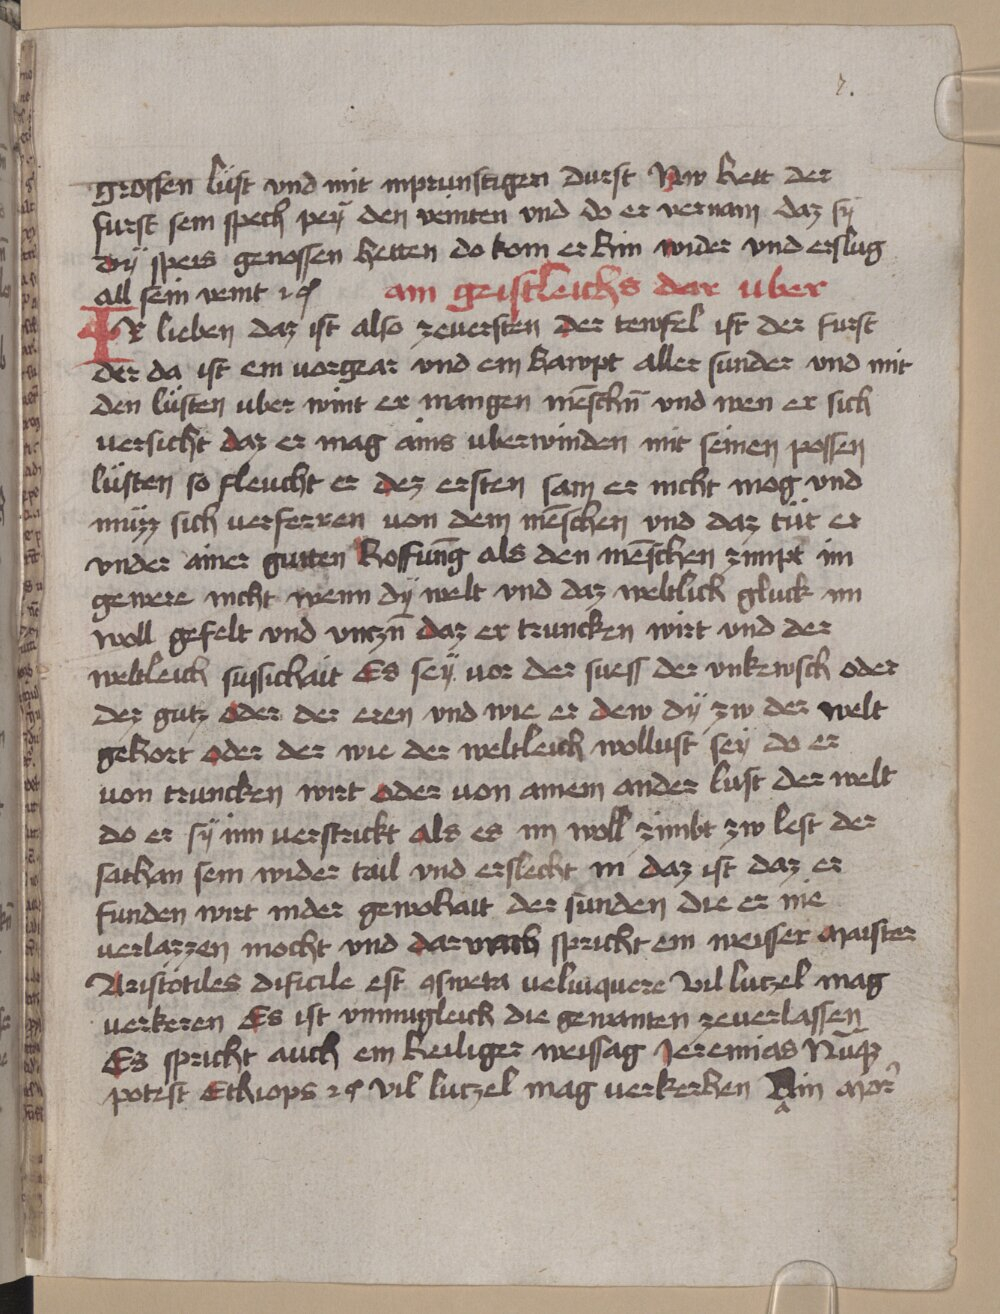 7.
grossen lüst vnd mit inprunstigen durst Nw hett der
furst sein spech peÿ den veinten vnd do er vernam daz sÿ
dÿ speis genossen hetten do kom er hin wider vnd erslug
all sein veint ꝛc̃ ain geistleichs dar vber
Ir lieben daz ist also zeuersten der tewfel ist der furst
der da ist ein vorgear vnd ein hawpt aller sunder vnd mit
den lüsten vber wint er mangen mēschñ vnd wen er sich
versicht daz er mag ains vberwinden mit seinen possen
lüsten so fleucht er dez ersten sam er nicht mog vnd
müzz sich verferren von dem mēschen vnd daz tüt er
vnder ainer gutten hoffūng als den mēschen zimpt im
gewere nicht wenn dÿ welt vnd daz weltlich gluck im
woll gefelt vnd vnczñ daz er truncken wirt vnd der
weltleich sussichait Es seÿ vor der suess der vnkewsch oder
dez gutz oder der eren vnd wie er dew dÿ zw der welt
gehort oder der wie der weltleich wollust seÿ do er
von truncken wirt oder von ainem ander lust der welt
do er sÿ inn verstrickt als es im woll zimbt zw lest der
sathan sein wider tail vnd erslecht in daz ist daz er
funden wirt inder gewohait der sunden die er nie
verlazzen mocht vnd dar vmb spricht ein weisser maister
Aristotiles dificile est ꝯsweta velinquere vil luczel mag
verkeren Es ist vnmugleich die genanten zeverlassen
Es spricht auch ein heiliger weissag Jeremias Nūqꝫ
potest Ethiops ꝛc̃ vil luczel mag verkerhen Ain mor